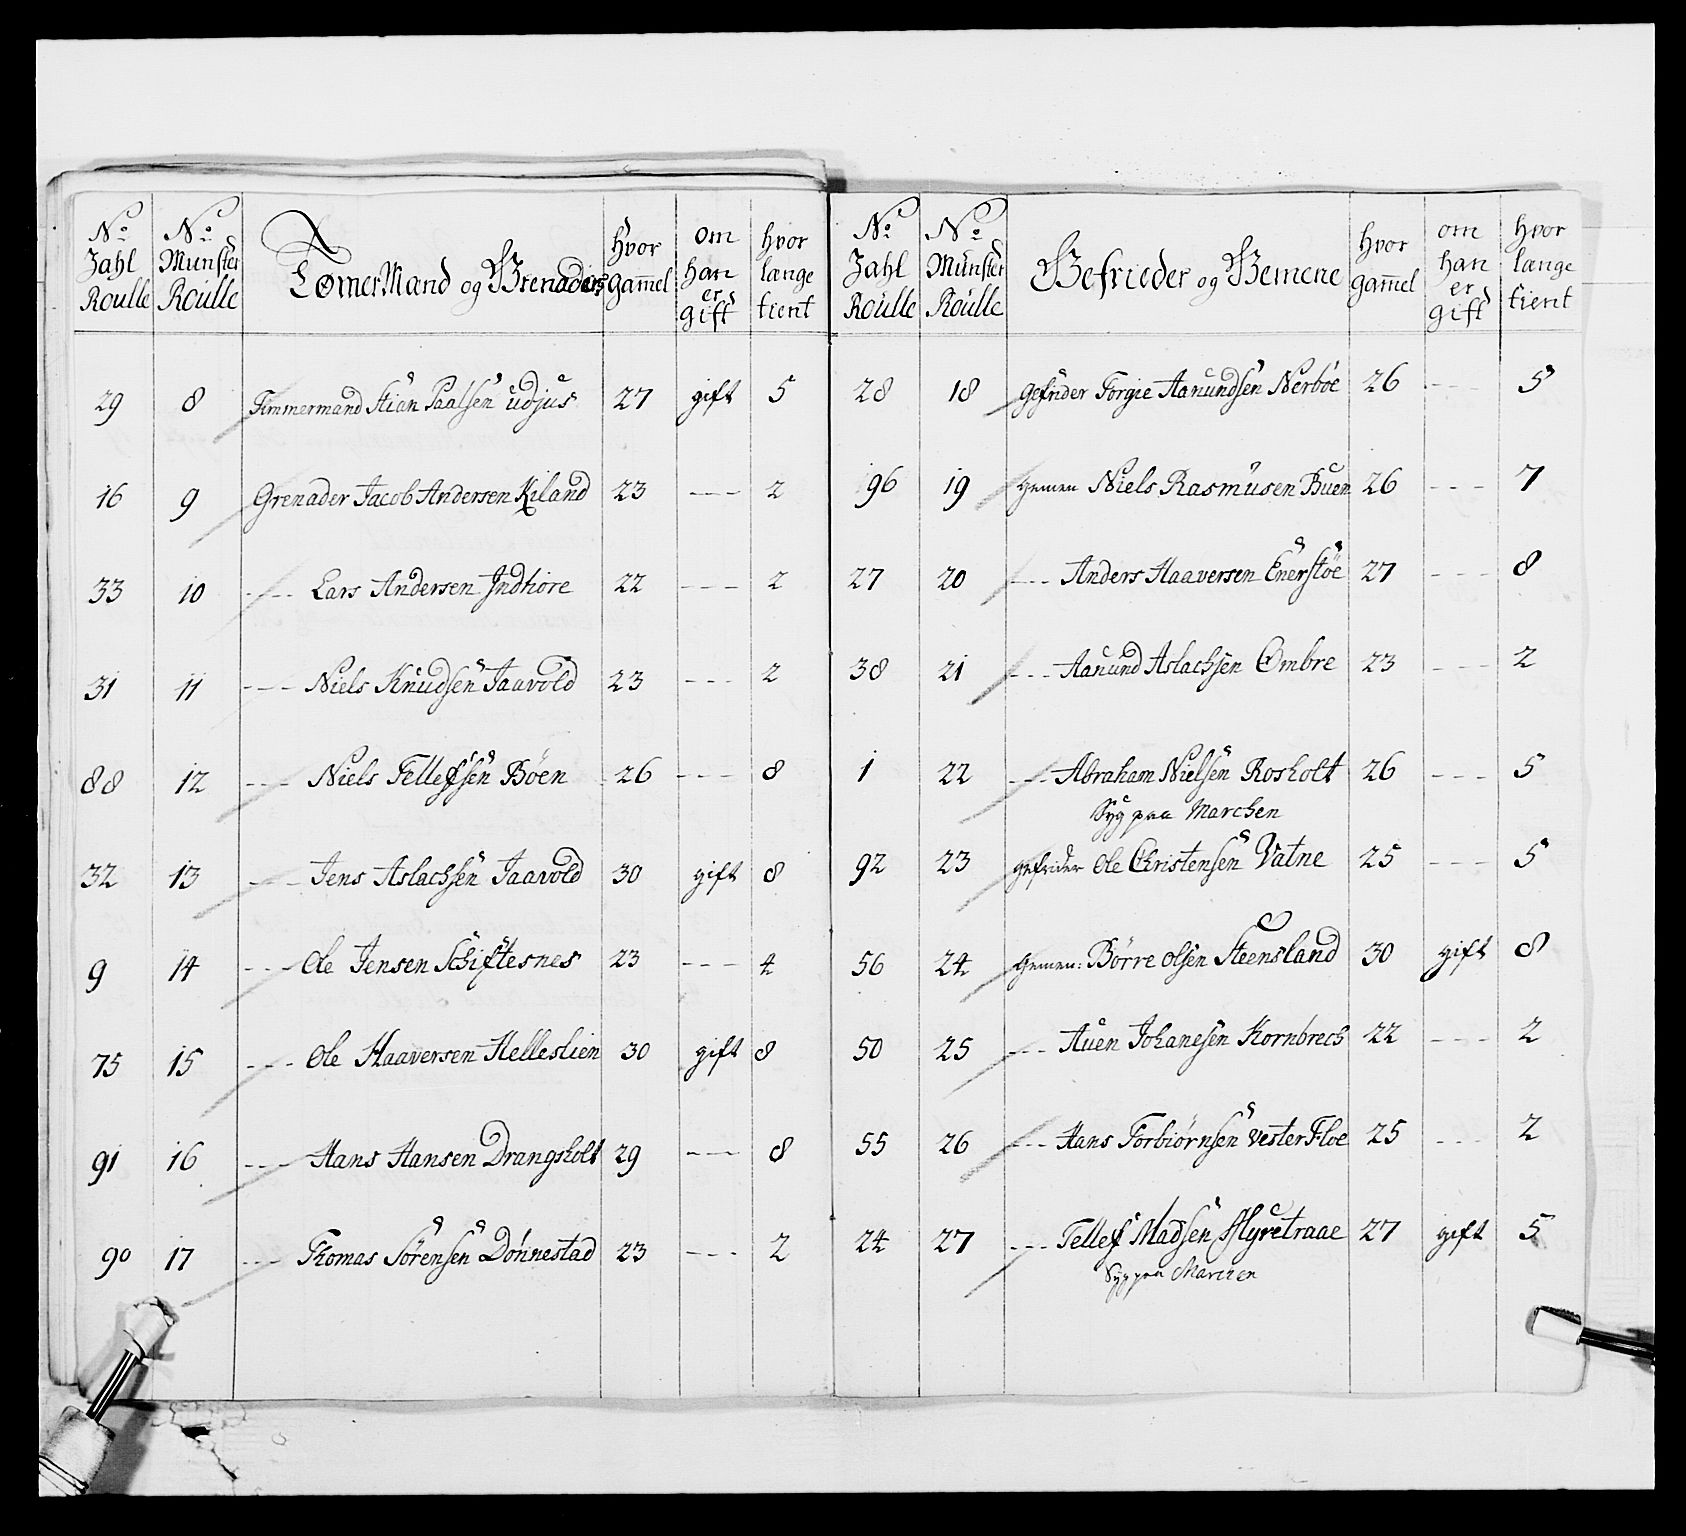 No Zahl Roulle | No Munster Roulle | Tømer Mand og Grenaders | Hvor gamel | om han er gift | hvor lange tient
29 8 Timmermand Stian Paalsen udjus 27 gift 5
16 9 Grenader Jacob Andersen Kiland 23 --- 2
33 10 --- Lars Andersen Indhøre 22 --- 2
31 11 --- Niels Knudsen Jaavold 23 --- 2
88 12 --- Niels Tellefsen Bøen 26 --- 8
32 13 --- Jens Aslachsen Jaavold 30 gift 8
9 14 --- Ole Jensen Schiftesnes 23 --- 4
75 15 --- Ole Haaversen Helleslien 30 gift 8
91 16 --- Hans Hansen Drangsholt 29 --- 8
90 17 --- Thomas Sørensen Dønnestad 23 --- 2
No Zahl Roulle | No Munster Roulle | Gefrieder og Gemene | Hvor gamel | om han er gift | hvor lange tient
28 18 Gefrider Torgie Aanundsen Nerbøe 26 --- 5
96 19 Gemen Niels Rasmusen Buen 26 --- 7
27 20 --- Anders Haaversen Enerstøe 27 --- 8
38 21 --- Aanund Aslachsen Ombre 23 --- 2
1 22 --- Abraham Nielsen Rosholt 26 --- 5
Syg paa Marchen
92 23 gefrider Ole Christensen Vatne 25 --- 5
56 24 Gemen: Børre olsen Steensland 30 gift 8
50 25 --- Auen Johanesen Kornbrech 22 --- 2
55 26 --- Hans Torbiørnsen vester Floe 25 --- 2
24 27 --- Tellef Madsen Myretraae 27 gift 5
Syg paa Marchen